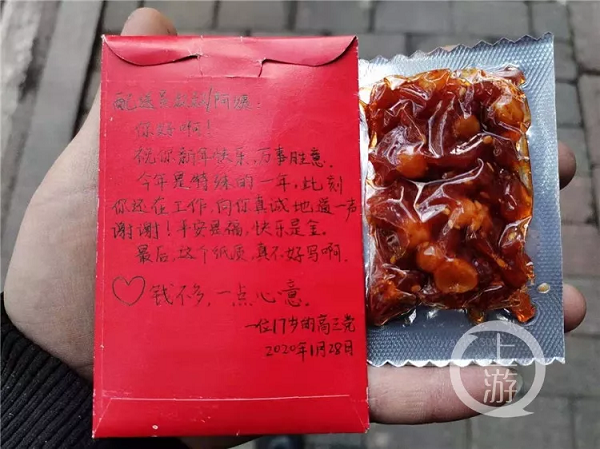 配送员叔叔/阿姨:
你好啊!
祝你新年快乐,万事胜意。
今年是特殊的一年,此刻
你还在工作,向你真诚地道一声
谢谢!平安是福,快乐是金。
最后,这个纸质真不好写啊。
♡钱不多,一点心意。
一位17岁的高三党
2020年1月28日
上游